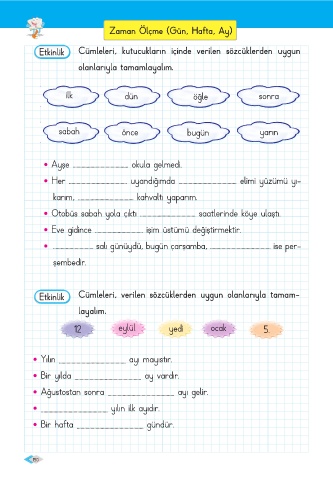 Zaman Ölçme (Gün, Hafta, Ay)
Etkinlik Cümleleri, kutucukların içinde verilen sözcüklerden uygun
olanlarıyla tamamlayalım.
ilk dün öğle sonra
sabah önce bugün yarın
• Ayşe ____________ okula gelmedi.
• Her ____________ uyandığımda ____________ elimi yüzümü yı-
karım, ____________ kahvaltı yaparım.
• Otobüs sabah yola çıktı ____________ saatlerinde köye ulaştı.
• Eve gidince ____________ işim üstümü değiştirmektir.
• ____________ salı günüydü, bugün çarşamba, ____________ ise per-
şembedir.
Etkinlik Cümleleri, verilen sözcüklerden uygun olanlarıyla tamam-
layalım.
12 eylül yedi ocak 5.
• Yılın ____________ ayı mayıstır.
• Bir yılda ____________ ay vardır.
• Ağustostan sonra ____________ ayı gelir.
• ____________ yılın ilk ayıdır.
• Bir hafta ____________ gündür.